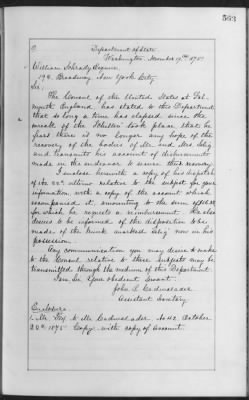 563
Department of State
Washington, November 19th 1875
William Schrady Esquire
192 Broadway New York City
Sir:
The Consul of the United States at Fal-
mouth England, has stated to this Department
that so long a time has elapsed since the
wreck of the "Schiller" took place that he
fears there is no longer any hope of the
recovery of the bodies of Mr and Mrs
and transmits his account of disbursements
made in the endeavor to secure their recovery.
I enclose herewith a copy of his dispatch
of the 22d ultimo relative to the subject for your
information with a copy of the account which
accompanied it, amounting to the sum of
for which he requests a reimbursement. He also
desires to be informed of the disposition to be
made of the trunk marked now in his
possession.
Any communication you may desire to make
to the Consul relative to these subjects may be
transmitted through the medium of this Department.
I am Sir Your obedient Servant.
John L. Cadwalader
Assistant Secretary
Enclosure
1. Mr Fox to Mr Cadwalader No 42 October
22d 1875 Copy with copy of Account.